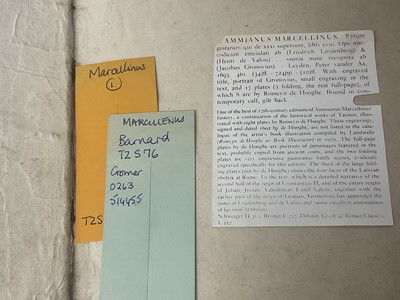 Marcellinus
1
T2S
MARCELLINUS
Barnard
T2S76
Cromer
0263
514455
AMMIANUS MARCELLINUS. Rerum
gestarum qui de xxxi supersunt, libri xviii. Ope mss
codicum emendati ab (Friedrich Lindenbrog) &
(Henri de Valois) omnia nunc recognita ab
(Jacobus Gronovius) Leyden, Peter vander Aa,
1693. 4to. With engraved
title, portrait of Gronovius, small engraving in the
text, and 17 plates (3 folding, the rest full-page), of
which 8 are by Romeyn de Hooghe. Bound in con-
temporary calf, gilt back
One of the best of 17th-century editions of Ammianus Marcellinus'
history, a continuation of the historical works of Tacitus, illus-
trated with eight plates by Romeyn de Hooghe. These engravings,
signed and dated 1692 by de Hooghe, are not listed in the cata-
logue of the artist's book illustration compiled by Landwehr
(Romeyn de Hooghe as Book Illustrator) in 1970. The full-page
plates by de Hooghe are portraits of personages featured in the
text, probably copied from ancient coins, and the two folding
plates are very impressive panoramic battle scenes, evidently
engraved specifically for this edition. The third of the large fold-
ing plates (not by de Hooghe) shows the four faces of the Lateran
obelisk at Rome. To the text, which is a detailed narrative of the
second half of the reign of Constantius II, and of the entire reigns
of Julian, Jovian, Valentinian I and Valens, together with the
earlier part of the reign of Gratian, Gronovius has appended the
notes of Lindenbrog and de Valois and some excellent annotations
of his own.
Schweiger II, p. 2; Brunet I,